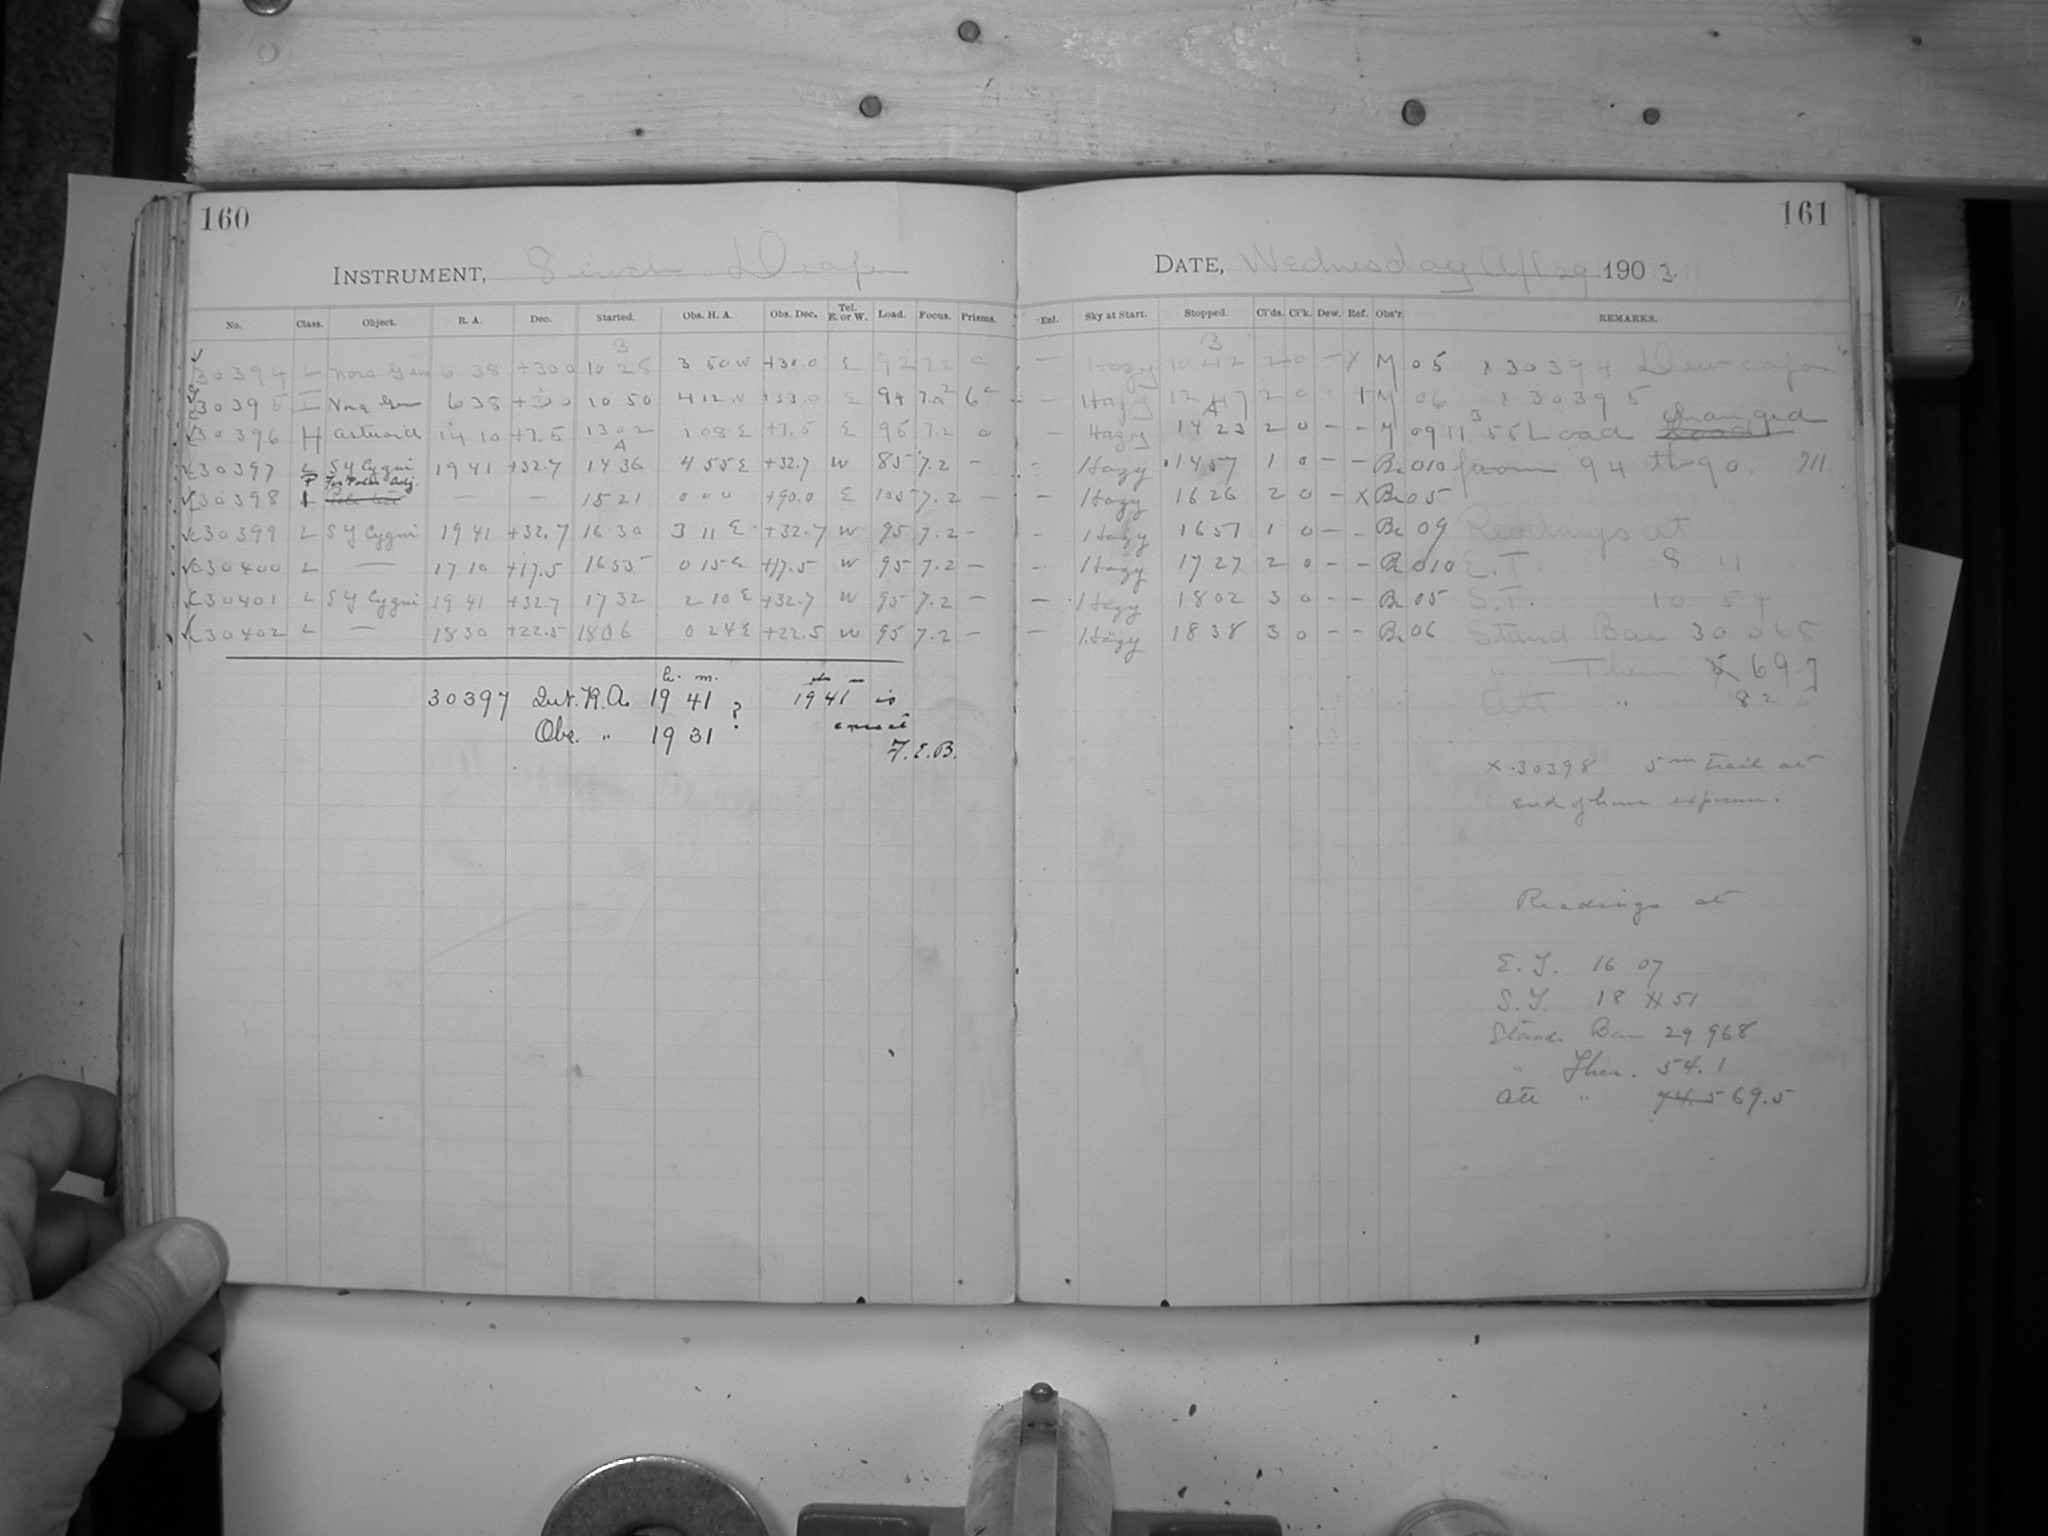 160
161
INSTRUMENT, 8 inch Draper
DATE, Wednesday Apl 29 1903.
No. Class. Object. R. A. Dec. Started. Obs. H. A. Obs. Dec. Tel. E. or W. Load. Focus. Prisms. Enl. Sky at Start. Stopped. Cl'ds. Cl'k. Dew. Ref. Obs'r. REMARKS.
30394 L Nova Gem 6 38 +30.0 10 28 3 50 W +30.0 E 92 7.2 0 — Hazy 10 42 2 0 – X M 05 x 30394 Dew cap
30395 I Nova Gem 6 38 +30.0 10 50 4 12 W +33.0 E 94 7.2 6 – Hazy 12 47 2 0 – + M 06 x 30395
30396 H Asteroid 14 10 +7.5 13 02 1 08 E +7.5 E 96 7.2 0 Hazy 14 23 2 0 – – M 09 11 55 Load changed
30397 L SY Cygni 19 41 +32.7 14 36 4 55 E +32.7 W 85 7.2 – – Hazy 14 57 1 0 – – Br 010 from 94 to 90. M.
30398 P For Polar Adj. — — 15 21 0 0 0 +90.0 E 105 7.2 – – Hazy 16 26 2 0 – X Br 05
30399 L SY Cygni 19 41 +32.7 16 30 3 11 E +32.7 W 95 7.2 – – Hazy 16 51 1 0 – – Br 09 Readings at
30400 L — 17 10 +17.5 16 55 0 15 E +17.5 W 95 7.2 – – Hazy 17 27 2 0 – – Br 010 E.T. 8 11
30401 L SY Cygni 19 41 +32.7 17 32 2 10 E +32.7 W 95 7.2 – – Hazy 18 02 3 0 – – Br 05 S.T. 10 54
30402 L — 18 30 +22.5 18 06 0 24 E +22.5 W 95 7.2 – – Hazy 18 38 3 0 – – Br 06 Stand Bar 30.068
" Therm 69.7
Att " 82.5
h. m.
30397 Int. R.A. 19 41 ? 19 41 is
Obs. " 19 31 correct
F.E.B.
X 30398 5m trail at
end of hour exposure.
Readings at
E.T. 16 07
S.T. 18 51
Stand. Bar 29 968
" Ther. 54.1
Att " 74.5 69.5